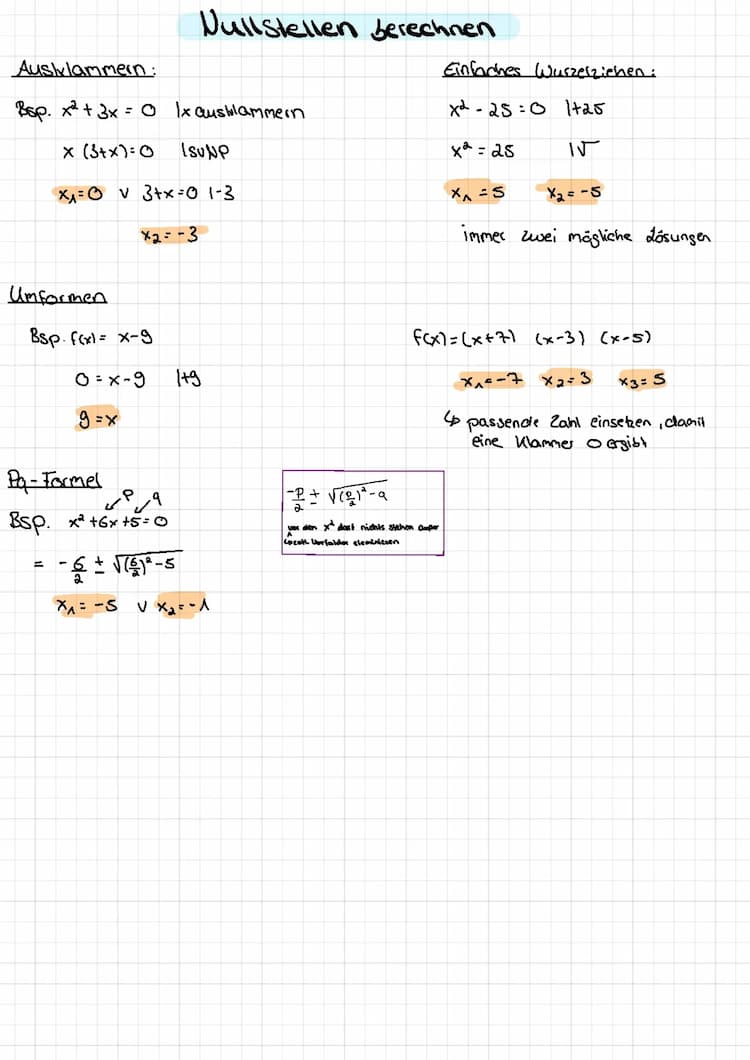 Nullstellen berechnen
Ausklammern:
Bsp. x² + 3x = 0 | x ausklammern
x (3+x)=0 | SVNP
x₁=0 ∨ 3+x=0 | -3
x₂=-3
Einfaches Wurzelziehen:
x² - 25 = 0 | +25
x² = 25 | √
x₁ = 5 x₂ = -5
immer zwei mögliche Lösungen
Umformen
Bsp. f(x) = x-9
0 = x-9 | +9
9 = x
f(x) = (x+7) (x-3) (x-5)
x₁=-7 x₂=3 x₃=5
↳ passende Zahl einsetzen, damit
eine Klammer 0 ergibt
Pq-Formel
p q
Bsp. x² +6x +5=0
= -6/2 ± √(6/2)²-5
x₁ = -5 ∨ x₂ = -1
-p/2 ± √(p/2)²-q
vor den x² darf nichts stehen außer
1